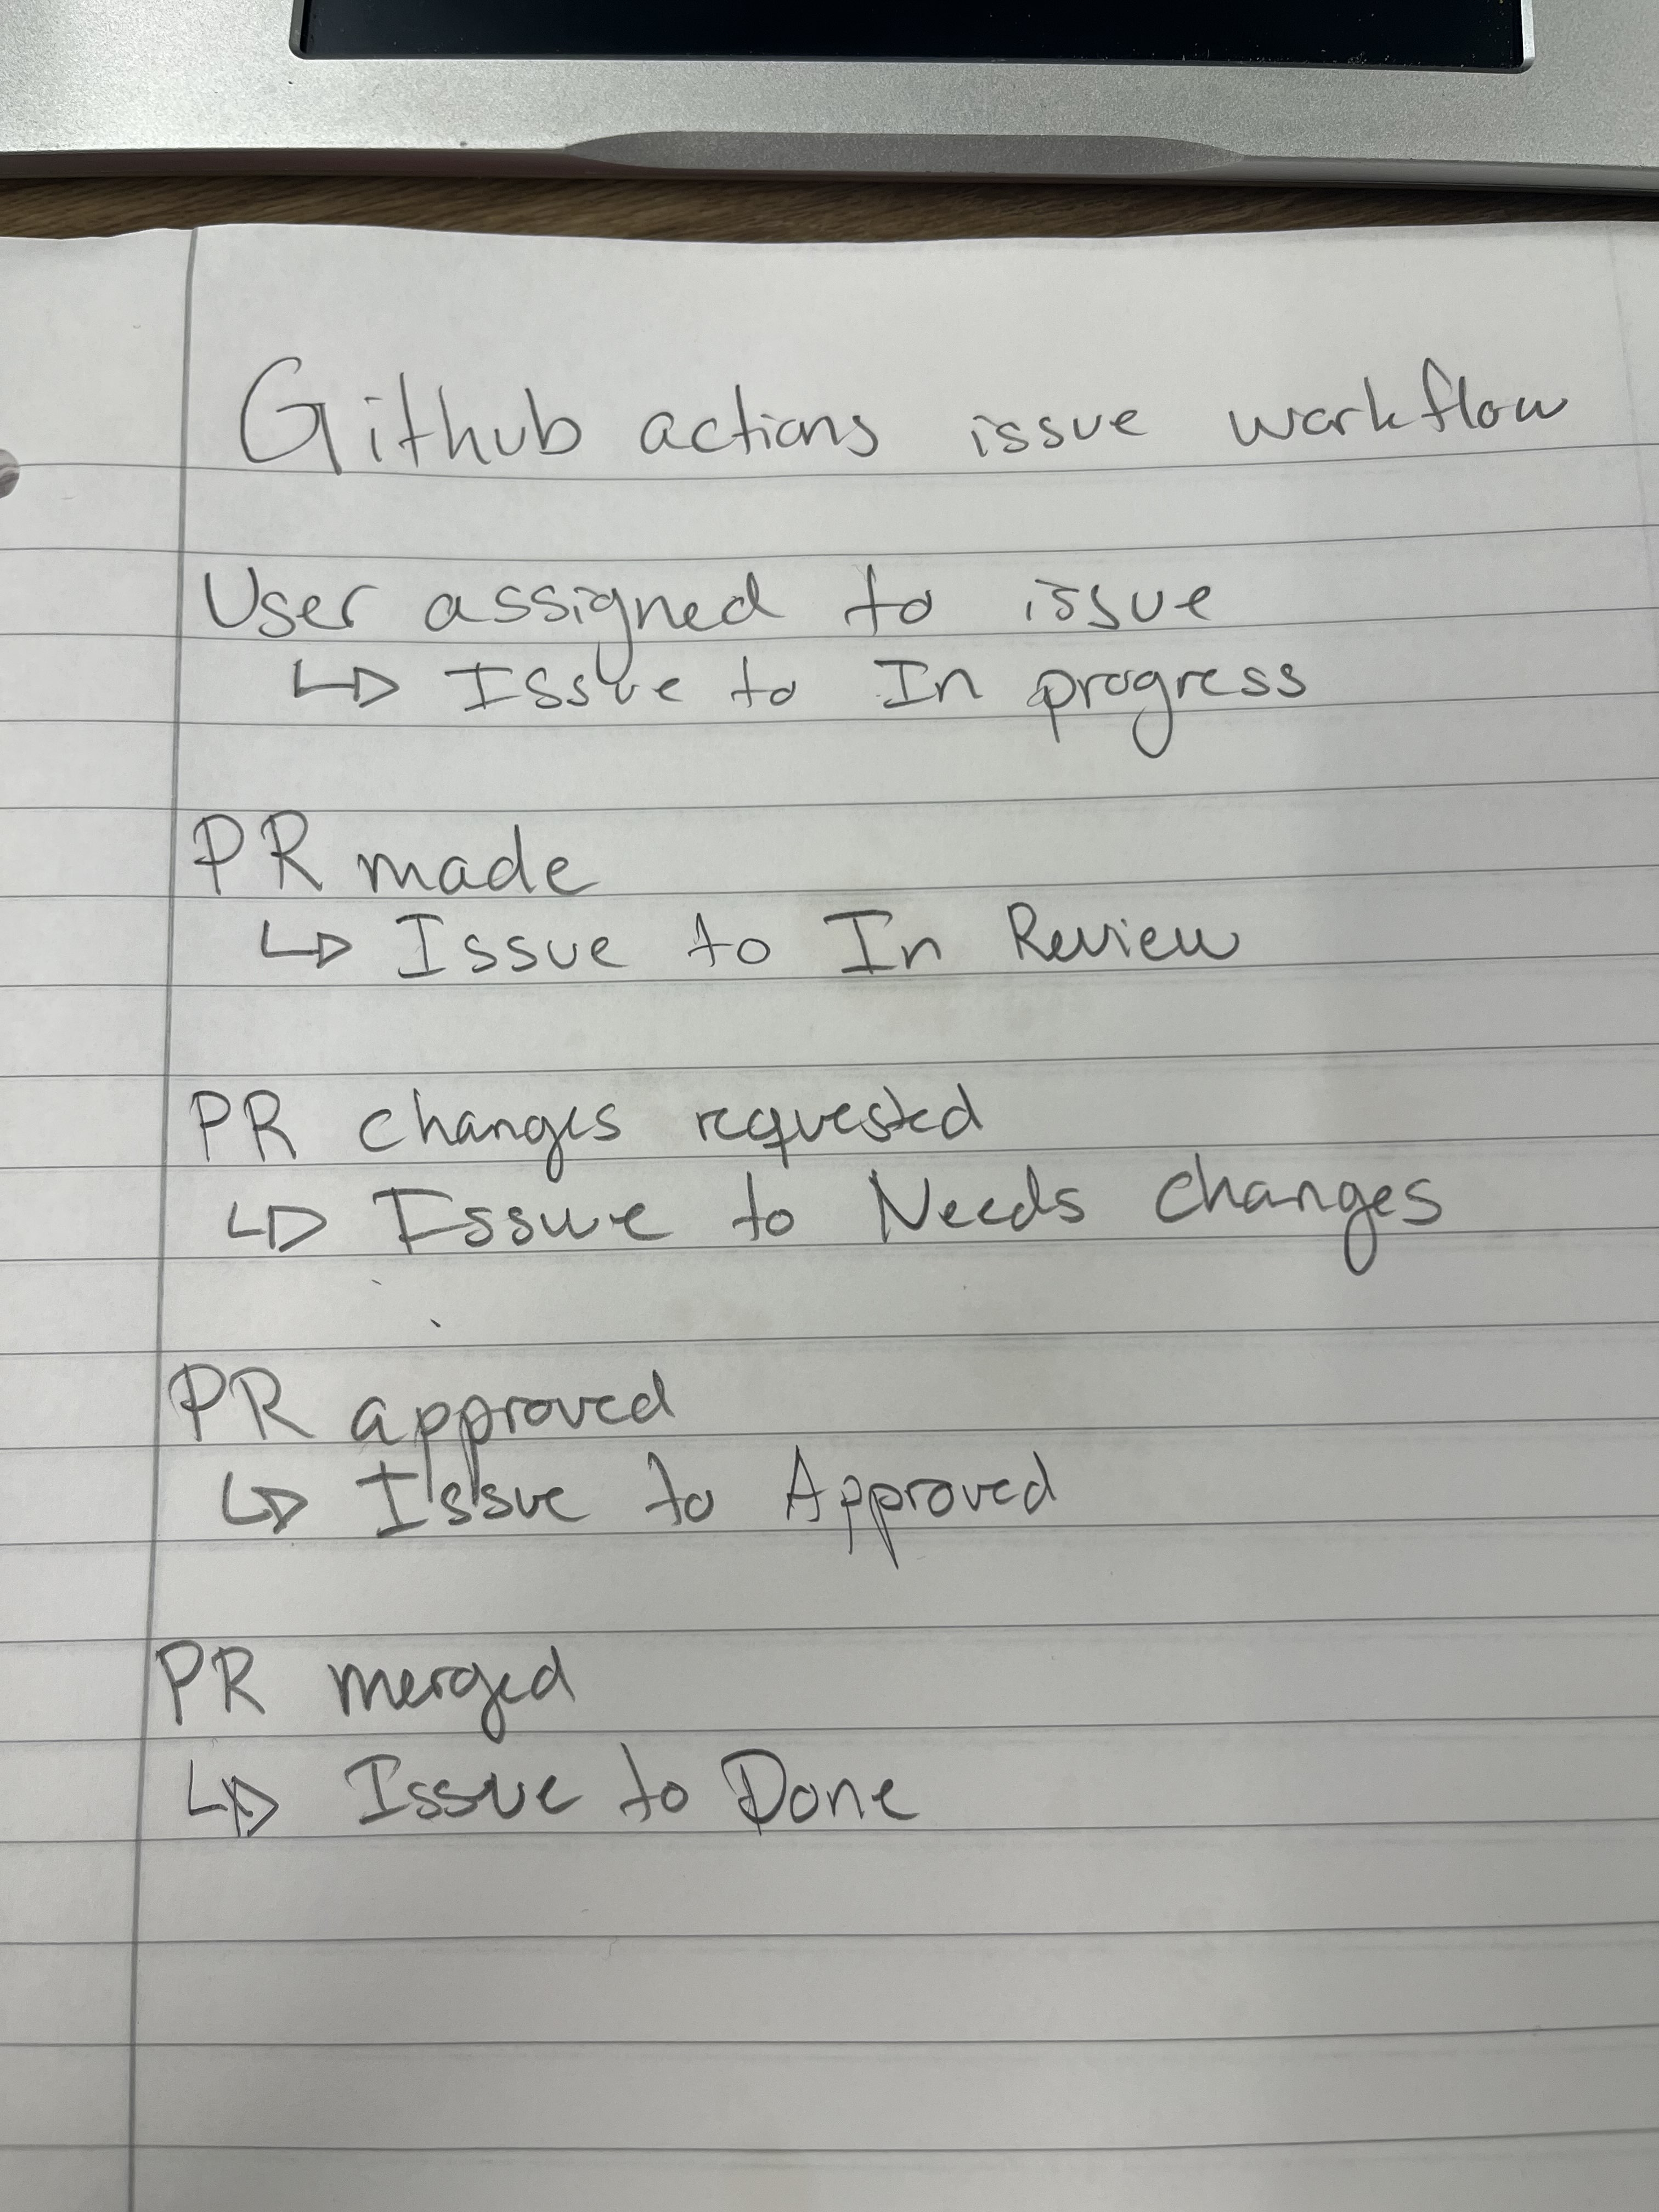 Github actions issue workflow
User assigned to issue
↳ Issue to In progress
PR made
↳ Issue to In Review
PR changes requested
↳ Issue to Needs changes
PR approved
↳ Issue to Approved
PR merged
↳ Issue to Done